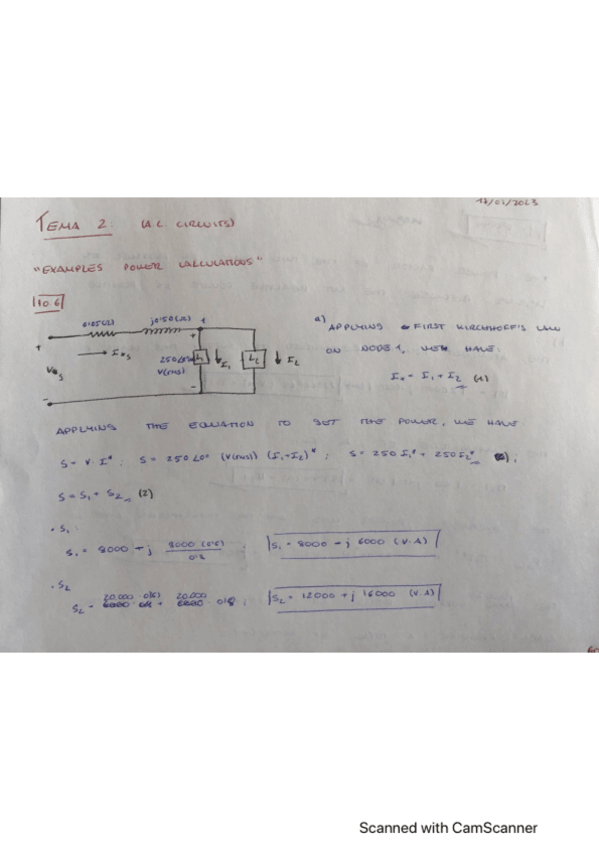 17/02/2023
TEMA 2: (A.C. CIRCUITS)
"EXAMPLES POWER CALCULATIONS"
10.6
0'05(Ω) j0'50(Ω) 1
+ + → Is
Vs 250∠0º V(rms) L1 ↓ I1 L2 ↓ I2
- -
a) APPLYING FIRST KIRCHHOFF'S LAW
ON NODE 1, WE HAVE:
Is = I1 + I2 (1)
APPLYING THE EQUATION TO GET THE POWER, WE HAVE
S = V · I* ; S = 250∠0º (V(rms)) (I1+I2)* ; S = 250 I1* + 250 I2* ;
S = S1 + S2 (2)
· S1 :
S1 = 8000 - j 8000 (0'6) / 0'8 ; S1 = 8000 - j 6000 (V·A)
· S2
20.000 0'6 20.000
S2 = + 0'8 ; S2 = 12000 + j 16000 (V·A)
Scanned with CamScanner